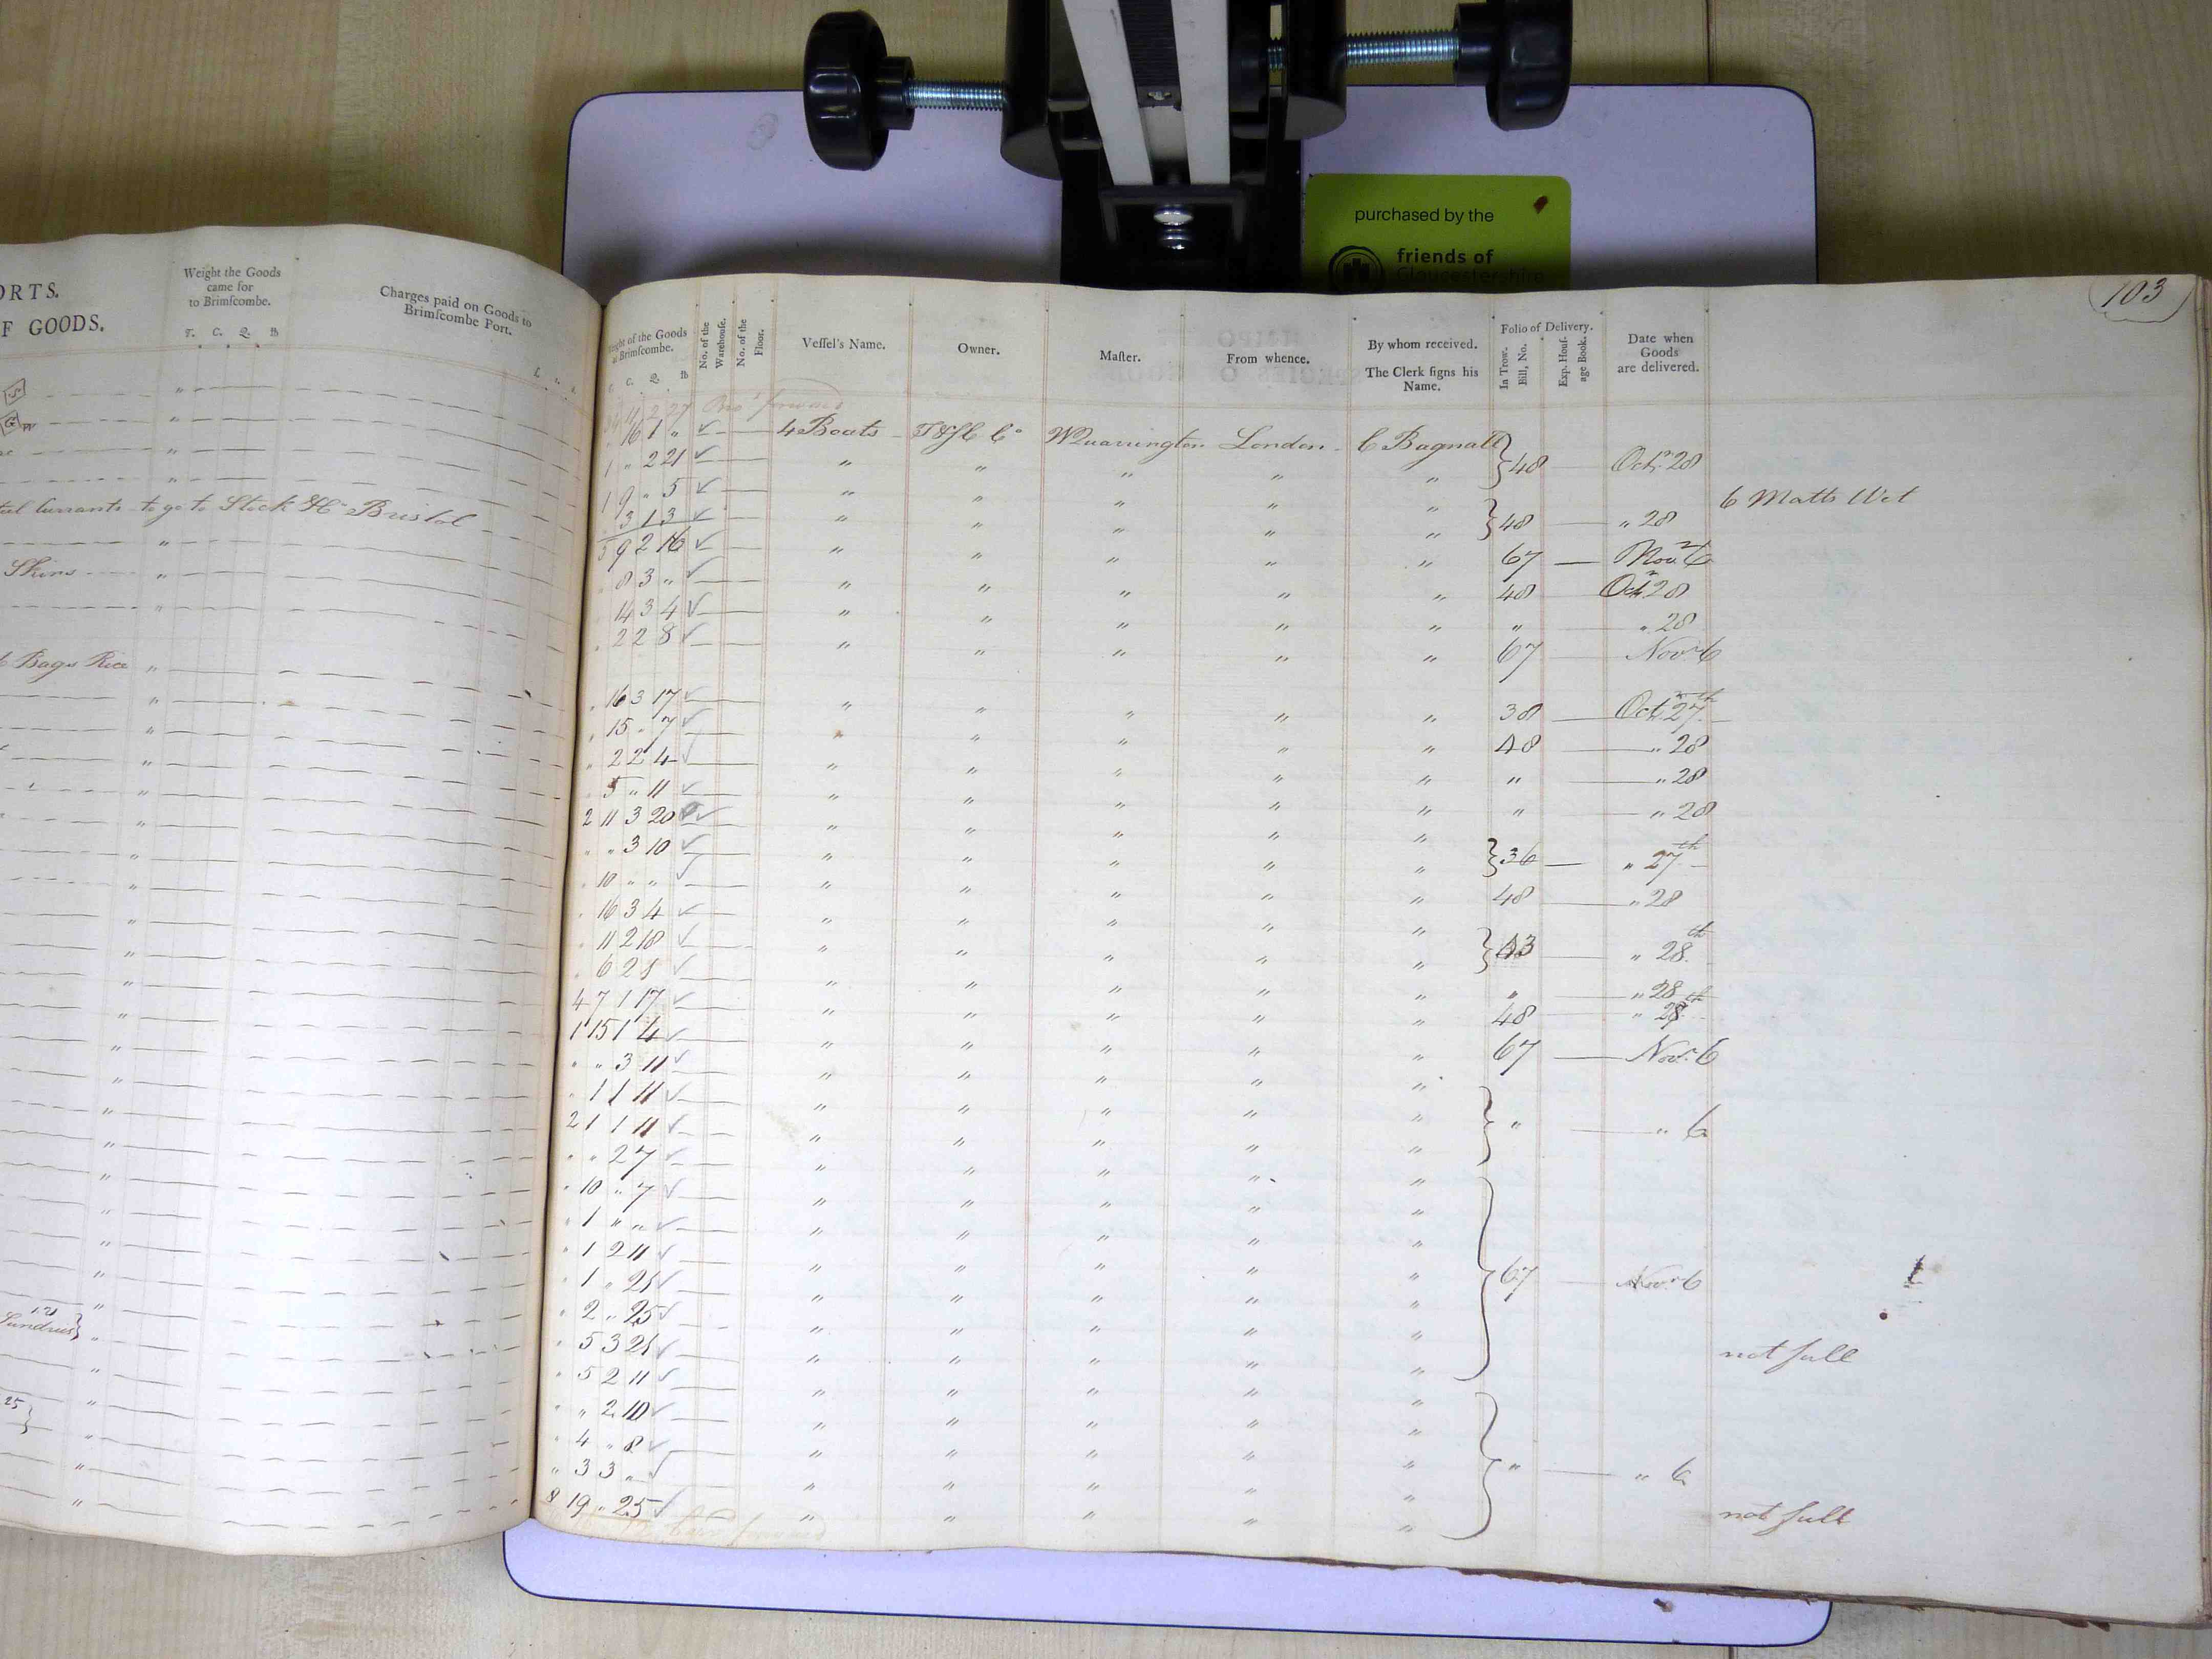 purchased by the
friends of
Gloucestershire
103
ORTS.
F GOODS.
Weight the Goods
came for
to Brimſcombe.
T. C. Q. lb
Charges paid on Goods to
Brimſcombe Port.
S
G
tal Currants to go to Stock & Co Bristol
Skins
6 Bags Rice
Sundries
25
ight of the Goods
at Brimſcombe.
C. Q. lb
No. of the
Warehouſe.
No. of the
Floor.
Veſſel's Name.
Owner.
Maſter.
From whence.
By whom received.
The Clerk ſigns his
Name.
Folio of Delivery.
In Trow.
Bill, No.
Exp. Houſ-
age Book.
Date when
Goods
are delivered.
11 2 27 Bro't forward
" 16 1 " ✓ 4 Boats T & S C Co W Quarrington London C Bagnall
1 " 2 21 ✓ " " " " " } 48 Octr 28
1 9 " 5 ✓ " " " " " 6 Matts Wet
3 13 ✓ " " " " " } 48 " 28
5 9 2 16 ✓ " " " " " 67 Novr 6
" 8 3 " ✓ " " " " " 48 Octr 28
" 14 3 4 ✓ " " " " " " " 28
" 2 2 8 ✓ " " " " " 67 Novr 6
" 16 3 17 ✓ " " " " " 38 Octr 27th
" 15 " 7 ✓ " " " " 48 " 28
" 2 2 4 ✓ " " " " " " " 28
" 5 " 11 ✓ " " " " " " " 28
2 11 3 20 ✓ " " " " "
" " 3 10 ✓ " " " " " } 36 " 27th
" 10 " " ✓ " " " " " 48 " 28
" 16 3 4 ✓ " " " " "
" 11 2 18 ✓ " " " " " } 43 " 28th
" 6 2 8 ✓ " " " " " " " 28
4 7 1 17 ✓ " " " " " 48 " 28th
1 15 1 4 ✓ " " " " " 67 Novr 6
" " 3 11 ✓ " " " " "
" 1 1 11 ✓ " " " " "
2 1 1 11 ✓ " " " " " } " " 6
" " 2 7 ✓ " " " " "
" 10 " 7 ✓ " " " " "
" 1 " " ✓ " " " " "
" 1 2 11 ✓ " " " " "
" 1 " 21 ✓ " " " " " } 67 Novr 6
" 2 " 25 ✓ " " " " "
" 5 3 21 ✓ " " " " " not full
" 5 2 11 ✓ " " " " "
" " 2 10 ✓ " " " " "
" 4 " 8 ✓ " " " " "
" 3 3 " ✓ " " " " " } " " 6
8 19 " 25 ✓ " " " " " not full